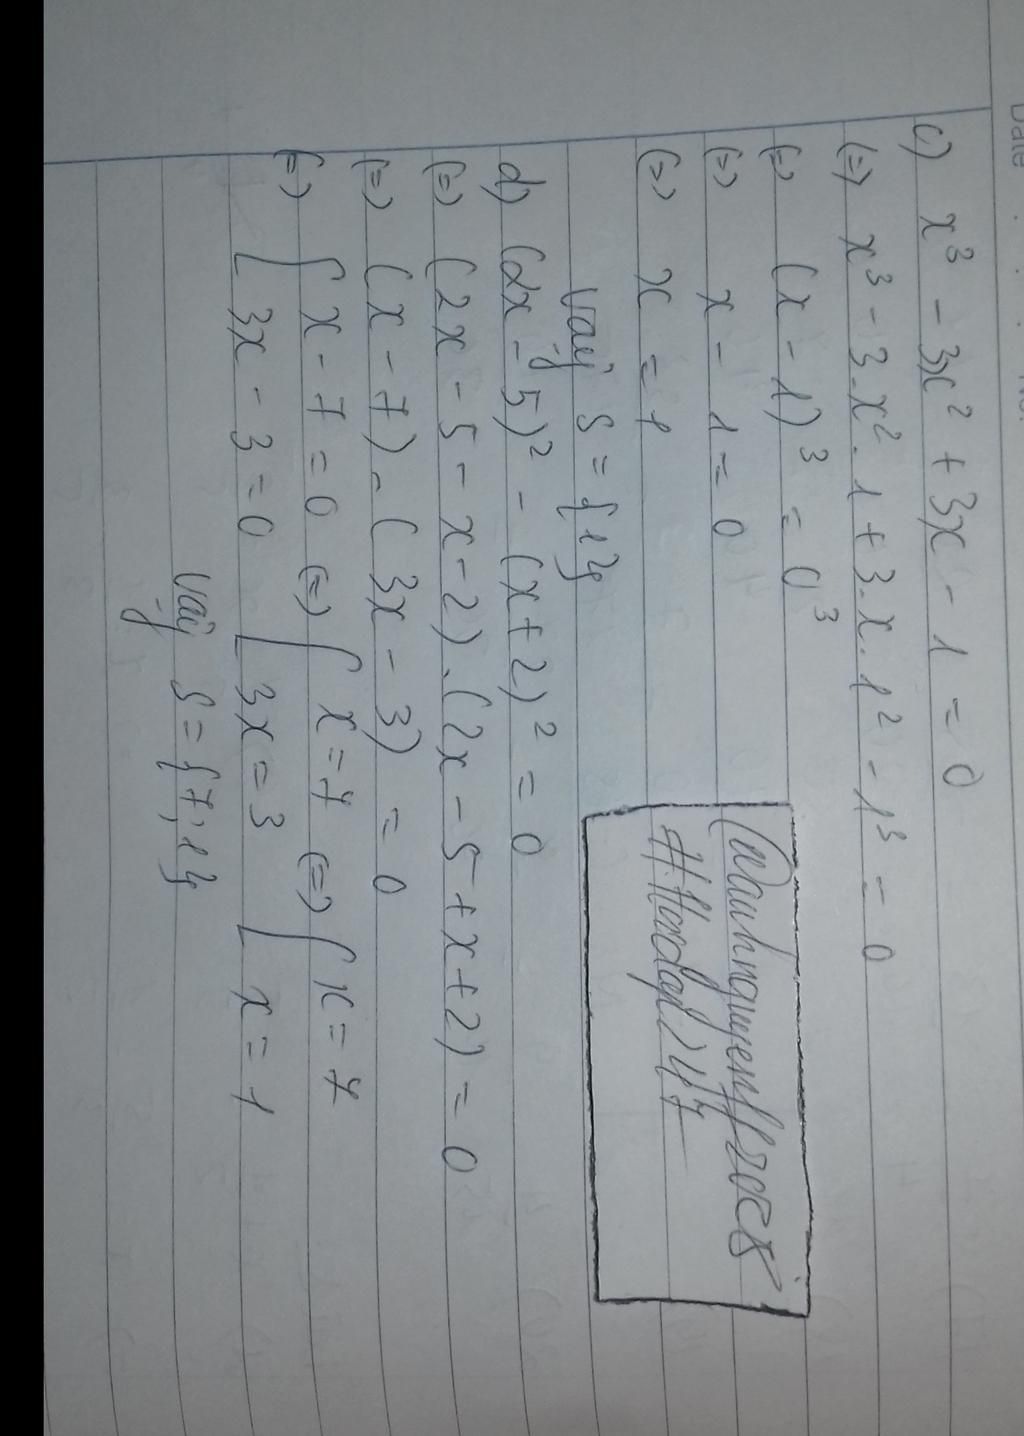 Date
No.
c) x³ - 3x² + 3x - 1 = 0
(=) x³ - 3.x².1 + 3.x.1² - 1³ = 0
(=) (x - 1)³ = 0³
(=) x - 1 = 0
(=) x = 1
Vậy S = {1}
#Hoidap247
d) (2x - 5)² - (x + 2)² = 0
(=) (2x - 5 - x - 2).(2x - 5 + x + 2) = 0
(=) (x - 7).(3x - 3) = 0
(=) [ x - 7 = 0 (=) [ x = 7 (=) [ x = 7
3x - 3 = 0 3x = 3 x = 1
Vậy S = {7; 1}